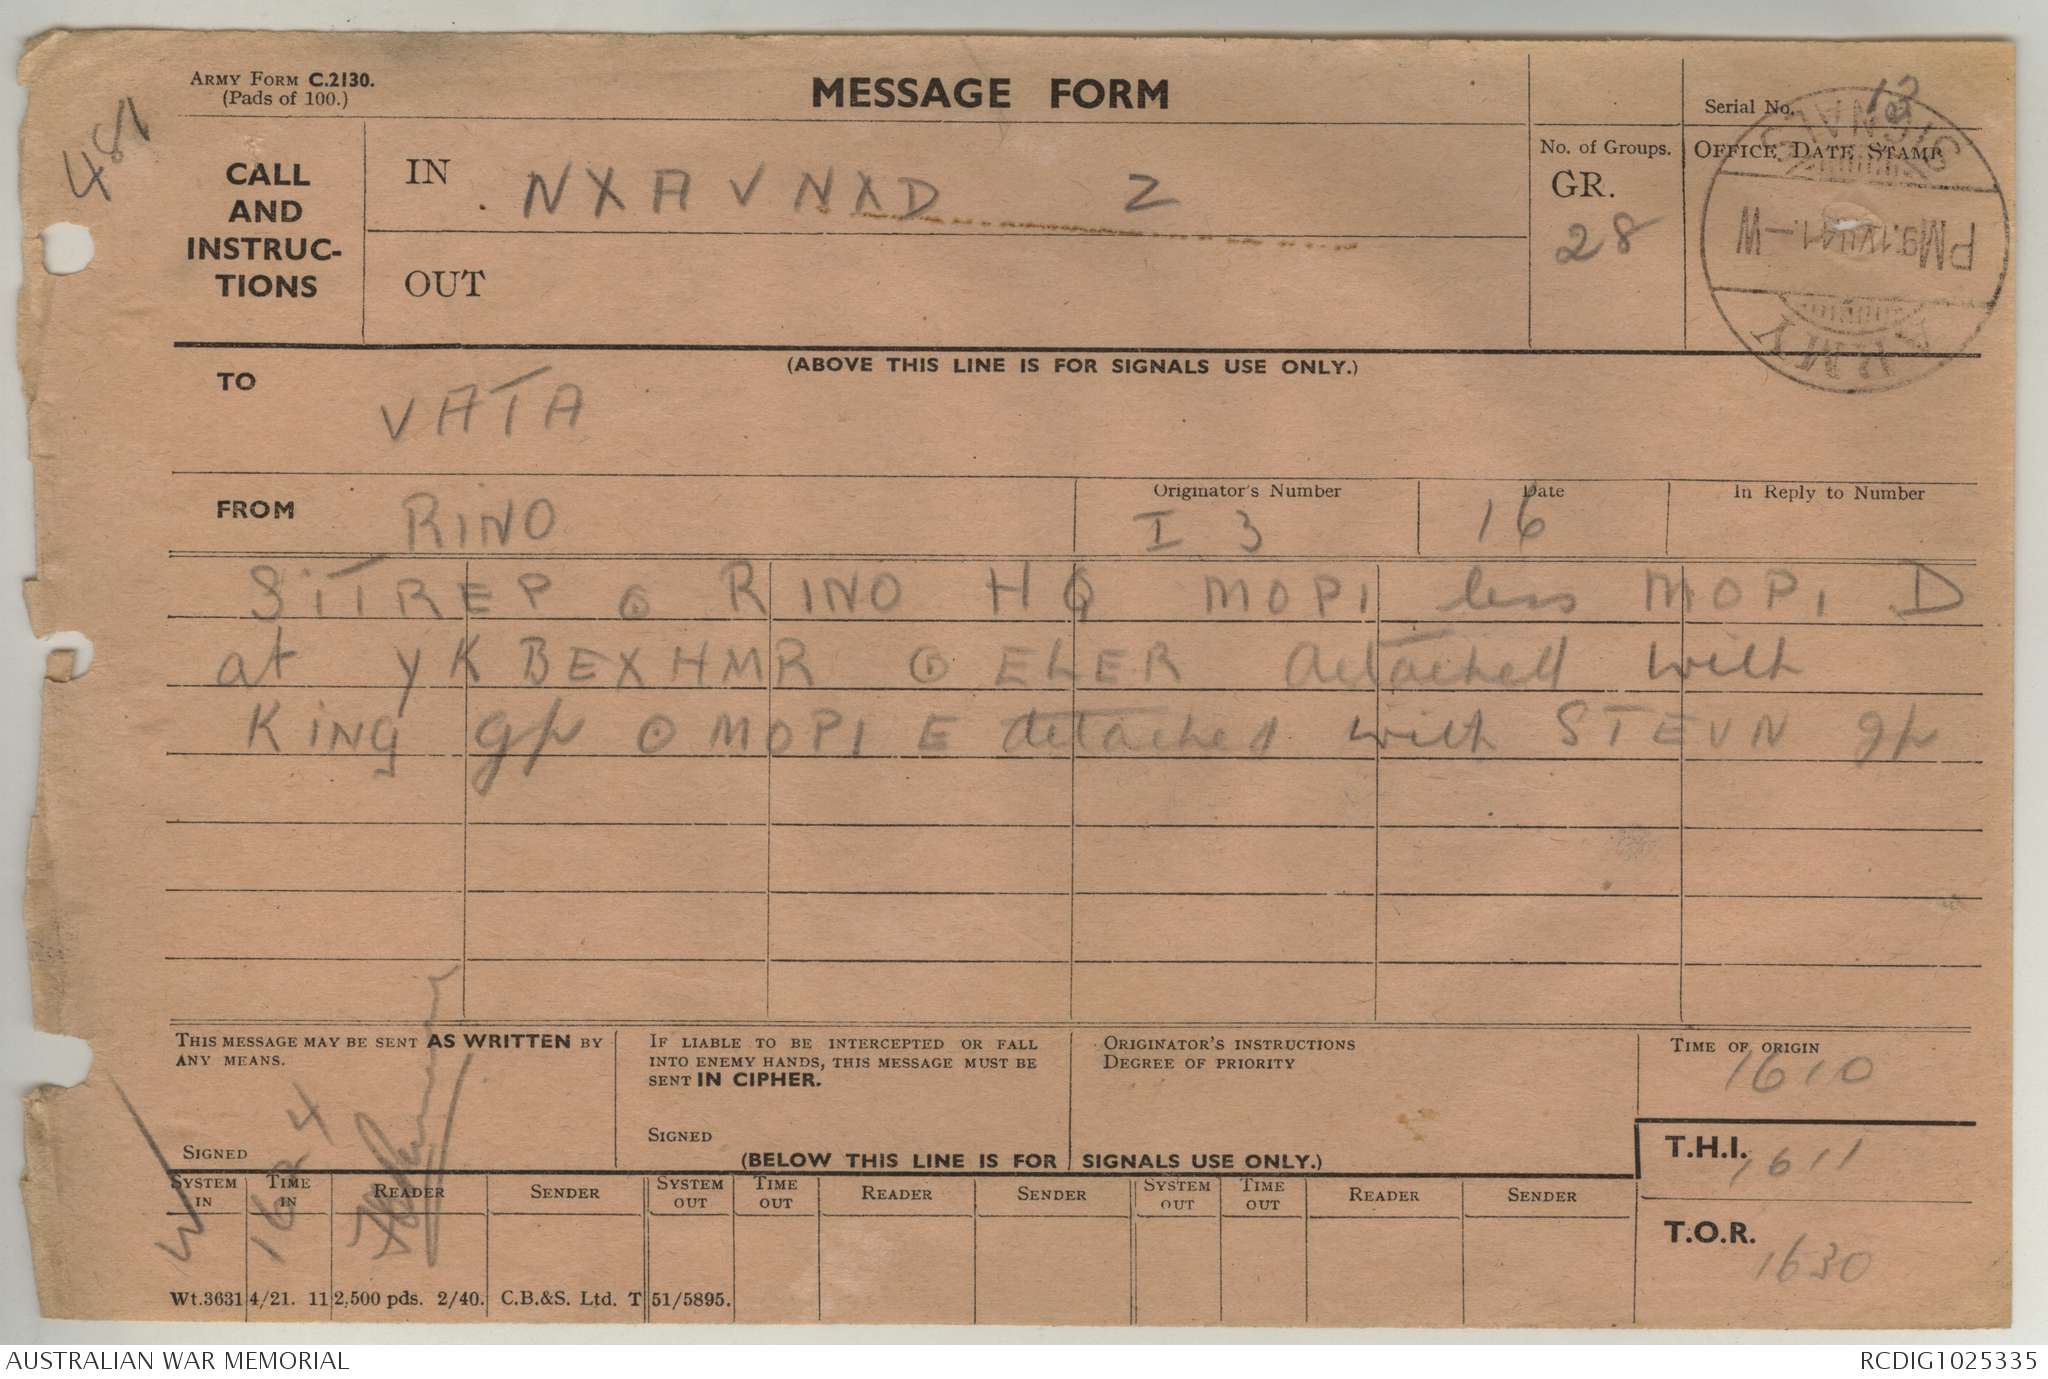 ARMY FORM C.2130.
(Pads of 100.)
MESSAGE FORM
Serial No. 13
481
CALL
AND
INSTRUC-
TIONS
IN NXA V NXD Z
OUT
No. of Groups.
GR.
28
OFFICE DATE STAMP
SIGNALS
ARMY
(ABOVE THIS LINE IS FOR SIGNALS USE ONLY.)
TO
VATA
FROM RINO
Originator's Number
I 3
Date
16
In Reply to Number
SITREP ⊙ RINO HQ MOPI less MOPI D
at YKBEXHMR ⊙ ELER detached with
KING gp ⊙ MOPI E detached with STEVN gp
THIS MESSAGE MAY BE SENT AS WRITTEN BY
ANY MEANS.
SIGNED
IF LIABLE TO BE INTERCEPTED OR FALL
INTO ENEMY HANDS, THIS MESSAGE MUST BE
SENT IN CIPHER.
SIGNED
ORIGINATOR'S INSTRUCTIONS
DEGREE OF PRIORITY
TIME OF ORIGIN
1610
(BELOW THIS LINE IS FOR SIGNALS USE ONLY.)
T.H.I. 1611
T.O.R. 1630
SYSTEM IN TIME IN READER SENDER SYSTEM OUT TIME OUT READER SENDER SYSTEM OUT TIME OUT READER SENDER
W
Wt.3631 4/21. 11 2,500 pds. 2/40. C.B.&S. Ltd. T 51/5895.
AUSTRALIAN WAR MEMORIAL
RCDIG1025335